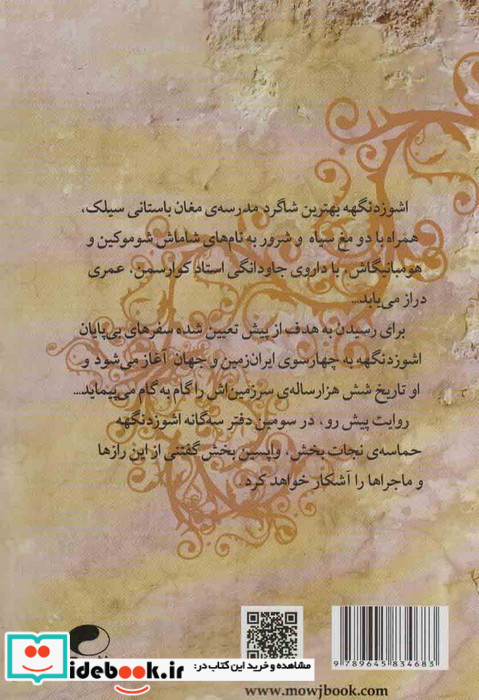 اشوزدنگهه بهترین شاگرد مدرسه‌ی مغان باستانی سیلک،
همراه با دو مغ سیاه و شرور به نام‌های شاماش شوموکین و
هومبانیگاش، با داروی جاودانگی استاد کوارسمن، عمری
دراز می‌یابد...
برای رسیدن به هدف از پیش تعیین شده سفرهای بی‌پایان
اشوزدنگهه به چهارسوی ایران‌زمین و جهان آغاز می‌شود و
او تاریخ شش هزارساله‌ی سرزمین‌اش را گام به گام می‌پیماید...
روایت پیش رو، در سومین دفتر سه‌گانه اشوزدنگهه
حماسه‌ی نجات بخش، واپسین بخش گفتنی از این رازها
و ماجراها را آشکار خواهد کرد.
9 789645 834683
idebook.ir
مشاهده و خرید این کتاب در:
www.mowjbook.com